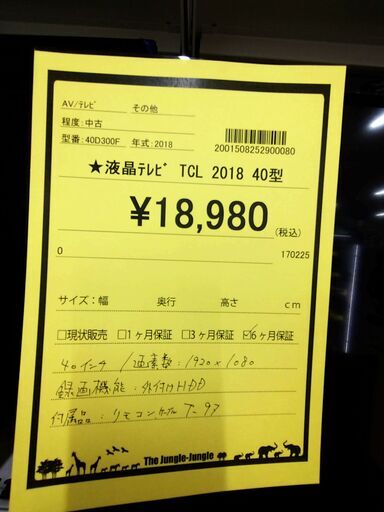 AV/テレビ その他
程度:中古
型番:40D300F 年式:2018
2001508252900080
★液晶テレビ TCL 2018 40型
¥18,980(税込)
0 170225
サイズ:幅 奥行 高さ cm
□現状販売 □1ヶ月保証 □3ヶ月保証 ☑6ヶ月保証
40インチ / 画素数:1920×1080
録画機能:外付けHDD
付属品:リモコン ケーブル
The Jungle-Jungle